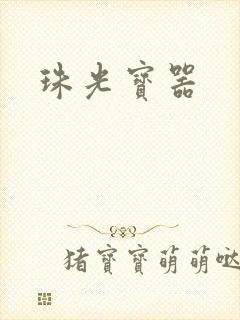 珠光寶器
猪寶寶萌萌哒